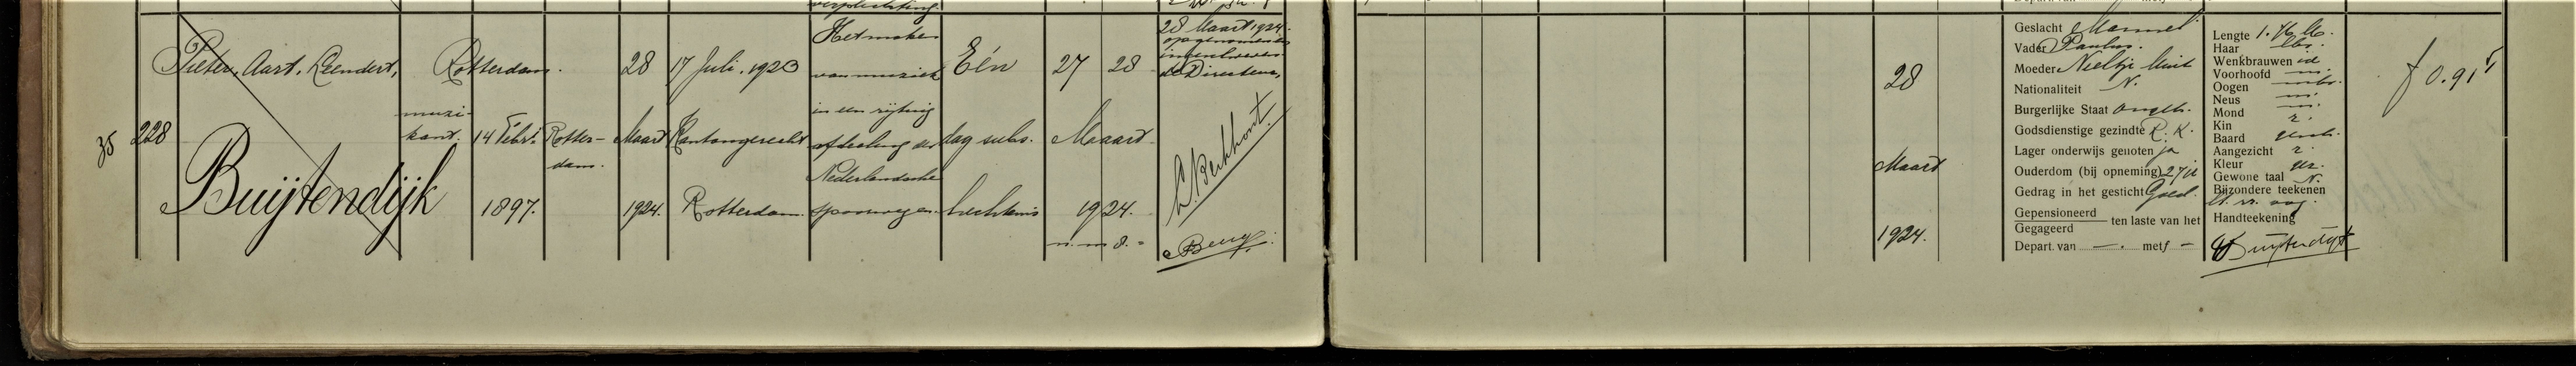 verplichting.
35
228
Pieter, Aart, Leendert,
Buijtendijk
Rotterdam.
muzi-
kant.
14 Febr.
1897.
Rotter-
dam.
28
Maart
1924.
17 Juli. 1923
Kantongerecht
Rotterdam.
Het maken
van muziek
in een rijtuig
afdeeling der
Nederlandsche
spoorwegen
Eén
dag subs.
hechtenis
27 28
Maart
1924.
28 Maart 1924.
opgenomen en
ingeschreven
de Directeur,
28
Maart
1924.
Geslacht Mannel
Vader Paulus.
Moeder Neeltje
Nationaliteit N.
Burgerlijke Staat ongeh.
Godsdienstige gezindte R. K.
Lager onderwijs genoten ja
Ouderdom (bij opneming) 27 j
Gedrag in het gesticht Goed.
Gepensioneerd
Gegageerd
ten laste van het
Depart. van —. met f —
Lengte 1.76 M.
Haar
Wenkbrauwen id
Voorhoofd m.
Oogen
Neus m.
Mond m.
Kin r.
Baard
Aangezicht r.
Kleur gez.
Gewone taal N.
Bijzondere teekenen
Handteekening
Buijtendijk
f 0.91⁵